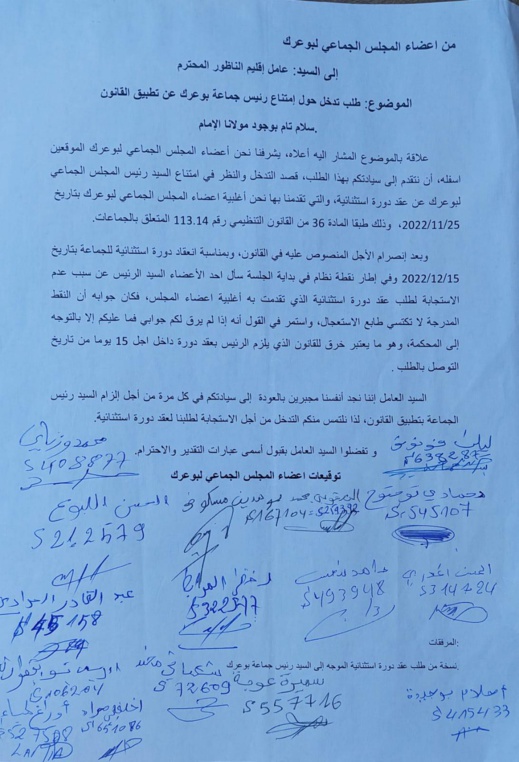 من اعضاء المجلس الجماعي لبوعرك
إلى السيد: عامل إقليم الناظور المحترم
الموضوع: طلب تدخل حول إمتناع رئيس جماعة بوعرك عن تطبيق القانون
سلام تام بوجود مولانا الإمام.
علاقة بالموضوع المشار اليه أعلاه، يشرفنا نحن أعضاء المجلس الجماعي لبوعرك الموقعين
اسفله، أن نتقدم إلى سيادتكم بهذا الطلب، قصد التدخل والنظر في امتناع السيد رئيس المجلس الجماعي
لبوعرك عن عقد دورة استثنائية، والتي تقدمنا بها نحن أغلبية اعضاء المجلس الجماعي لبوعرك بتاريخ
2022/11/25، وذلك طبقا المادة 36 من القانون التنظيمي رقم 113.14 المتعلق بالجماعات.
وبعد إنصرام الأجل المنصوص عليه في القانون، وبمناسبة انعقاد دورة استثنائية للجماعة بتاريخ
2022/12/15 وفي إطار نقطة نظام في بداية الجلسة سأل احد الأعضاء السيد الرئيس عن سبب عدم
الاستجابة لطلب عقد دورة استثنائية الذي تقدمت به أغلبية اعضاء المجلس، فكان جوابه أن النقط
المدرجة لا تكتسي طابع الاستعجال، واستمر في القول أنه إذا لم يرق لكم جوابي فما عليكم إلا بالتوجه
إلى المحكمة، وهو ما يعتبر خرق للقانون الذي يلزم الرئيس بعقد دورة داخل اجل 15 يوما من تاريخ
التوصل بالطلب.
السيد العامل إننا نجد أنفسنا مجبرين بالعودة إلى سيادتكم في كل مرة من أجل إلزام السيد رئيس
الجماعة بتطبيق القانون، لذا نلتمس منكم التدخل من أجل الاستجابة لطلبنا لعقد دورة استثنائية.
و تفضلوا السيد العامل بقبول أسمى عبارات التقدير والاحترام.
توقيعات اعضاء المجلس الجماعي لبوعرك
S545107
S212579
S314724
S493948
S322577
المرفقات:
نسخة من طلب عقد دورة استثنائية الموجه إلى السيد رئيس جماعة بوعرك.
سميرة عوجة
S72609
S557716
احلام بوحيدة
S415433
S106204
S651086